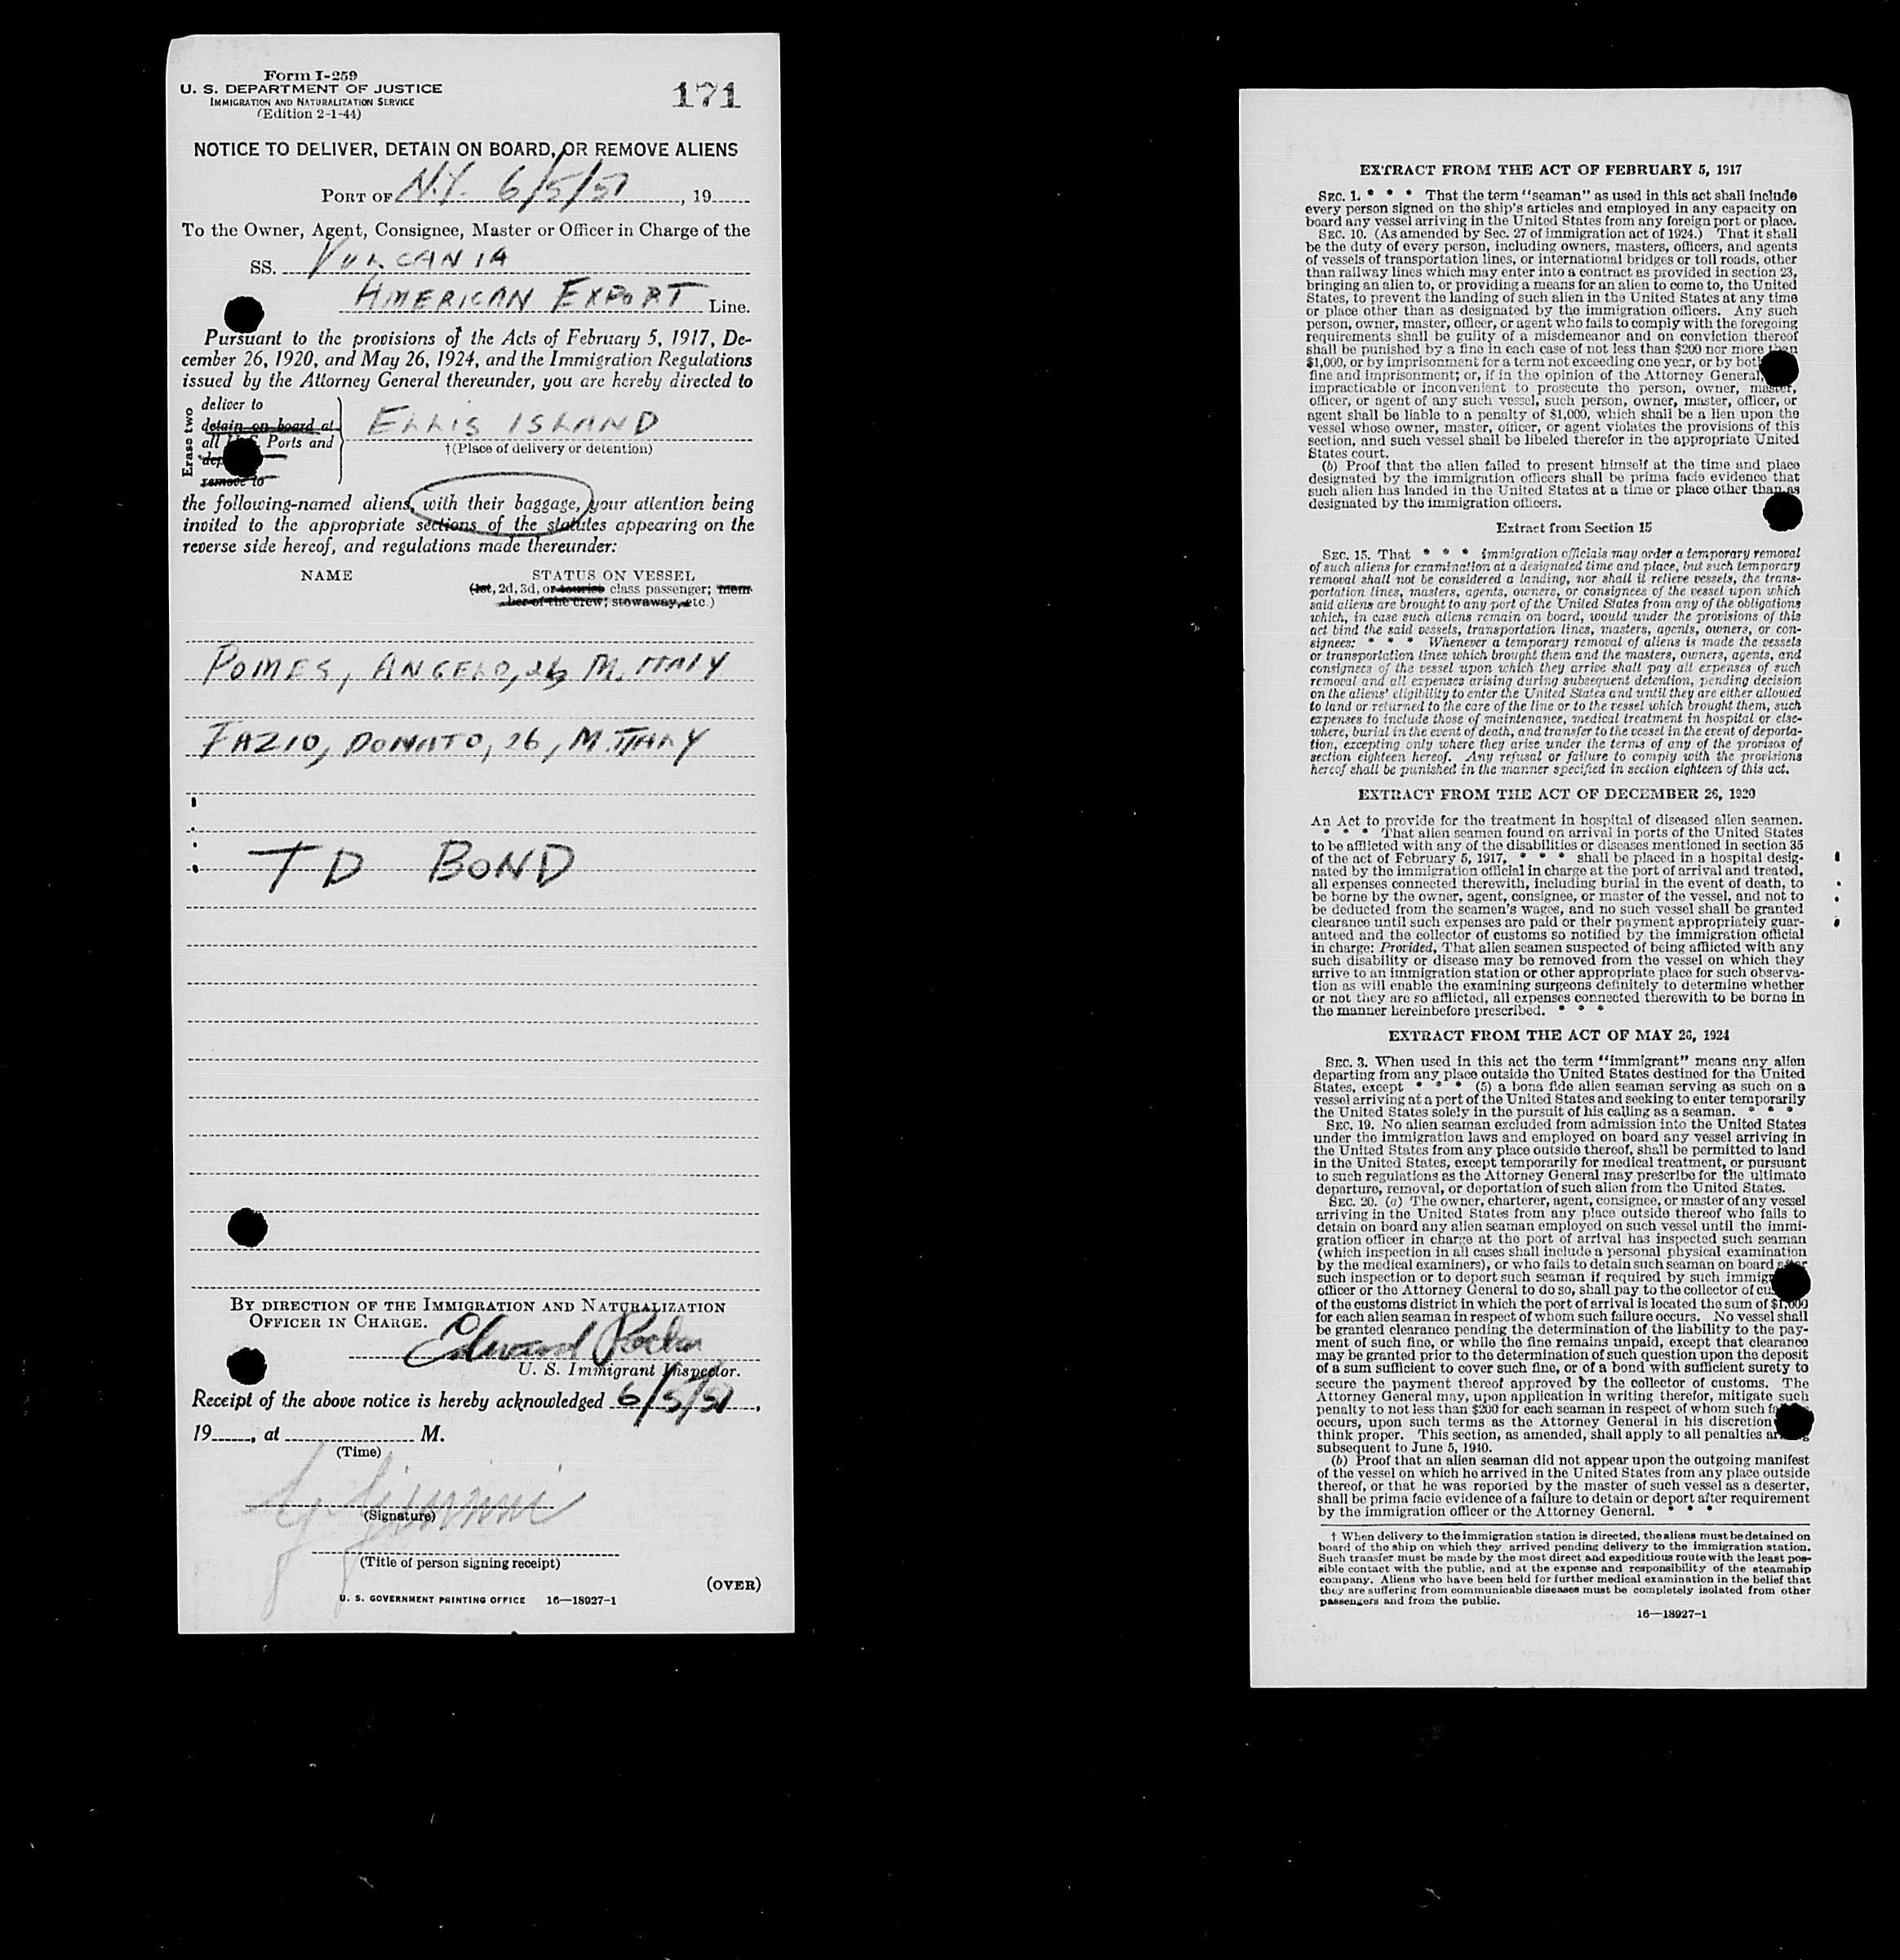 Form I-259
U. S. DEPARTMENT OF JUSTICE
IMMIGRATION AND NATURALIZATION SERVICE
(Edition 2-1-44)
171
NOTICE TO DELIVER, DETAIN ON BOARD, OR REMOVE ALIENS
PORT OF N.Y. 6/5/51, 19
To the Owner, Agent, Consignee, Master or Officer in Charge of the
SS. VULCANIA
AMERICAN EXPORT Line.
Pursuant to the provisions of the Acts of February 5, 1917, De-
cember 26, 1920, and May 26, 1924, and the Immigration Regulations
issued by the Attorney General thereunder, you are hereby directed to
Erase two
deliver to
detain on board at
all U.S. Ports and
remove to
ELLIS ISLAND
†(Place of delivery or detention)
the following-named aliens, with their baggage, your attention being
invited to the appropriate sections of the statutes appearing on the
reverse side hereof, and regulations made thereunder:
NAME STATUS ON VESSEL
(1st, 2d, 3d, or tourist class passenger; mem-
ber of the crew; stowaway, etc.)
POMES, ANGELO, 26, M. ITALY
FAZIO, DONATO, 26, M. ITALY
TD BOND
BY DIRECTION OF THE IMMIGRATION AND NATURALIZATION
OFFICER IN CHARGE.
Edward
U. S. Immigrant Inspector.
Receipt of the above notice is hereby acknowledged 6/5/51,
19, at M.
(Time)
(Signature)
(Title of person signing receipt)
(OVER)
U. S. GOVERNMENT PRINTING OFFICE 16—18927-1
EXTRACT FROM THE ACT OF FEBRUARY 5, 1917
SEC. 1. * * * That the term "seaman" as used in this act shall include
every person signed on the ship's articles and employed in any capacity on
board any vessel arriving in the United States from any foreign port or place.
SEC. 10. (As amended by Sec. 27 of immigration act of 1924.) That it shall
be the duty of every person, including owners, masters, officers, and agents
of vessels of transportation lines, or international bridges or toll roads, other
than railway lines which may enter into a contract as provided in section 23,
bringing an alien to, or providing a means for an alien to come to, the United
States, to prevent the landing of such alien in the United States at any time
or place other than as designated by the immigration officers. Any such
person, owner, master, officer, or agent who fails to comply with the foregoing
requirements shall be guilty of a misdemeanor and on conviction thereof
shall be punished by a fine in each case of not less than $200 nor more than
$1,000, or by imprisonment for a term not exceeding one year, or by both
fine and imprisonment; or, if in the opinion of the Attorney General,
impracticable or inconvenient to prosecute the person, owner, master,
officer, or agent of any such vessel, such person, owner, master, officer, or
agent shall be liable to a penalty of $1,000, which shall be a lien upon the
vessel whose owner, master, officer, or agent violates the provisions of this
section, and such vessel shall be libeled therefor in the appropriate United
States court.
(b) Proof that the alien failed to present himself at the time and place
designated by the immigration officers shall be prima facie evidence that
such alien has landed in the United States at a time or place other than as
designated by the immigration officers.
Extract from Section 15
SEC. 15. That * * * immigration officials may order a temporary removal
of such aliens for examination at a designated time and place, but such temporary
removal shall not be considered a landing, nor shall it relieve vessels, the trans-
portation lines, masters, agents, owners, or consignees of the vessel upon which
said aliens are brought to any port of the United States from any of the obligations
which, in case such aliens remain on board, would under the provisions of this
act bind the said vessels, transportation lines, masters, agents, owners, or con-
signees: * * * Whenever a temporary removal of aliens is made the vessels
or transportation lines which brought them and the masters, owners, agents, and
consignees of the vessel upon which they arrive shall pay all expenses of such
removal and all expenses arising during subsequent detention, pending decision
on the aliens' eligibility to enter the United States and until they are either allowed
to land or returned to the care of the line or to the vessel which brought them, such
expenses to include those of maintenance, medical treatment in hospital or else-
where, burial in the event of death, and transfer to the vessel in the event of deporta-
tion, excepting only where they arise under the terms of any of the provisos of
section eighteen hereof. Any refusal or failure to comply with the provisions
hereof shall be punished in the manner specified in section eighteen of this act.
EXTRACT FROM THE ACT OF DECEMBER 26, 1920
An Act to provide for the treatment in hospital of diseased alien seamen.
* * * That alien seamen found on arrival in ports of the United States
to be afflicted with any of the disabilities or diseases mentioned in section 35
of the act of February 5, 1917, * * * shall be placed in a hospital desig-
nated by the immigration official in charge at the port of arrival and treated,
all expenses connected therewith, including burial in the event of death, to
be borne by the owner, agent, consignee, or master of the vessel, and not to
be deducted from the seamen's wages, and no such vessel shall be granted
clearance until such expenses are paid or their payment appropriately guar-
anteed and the collector of customs so notified by the immigration official
in charge: Provided, That alien seamen suspected of being afflicted with any
such disability or disease may be removed from the vessel on which they
arrive to an immigration station or other appropriate place for such observa-
tion as will enable the examining surgeons definitely to determine whether
or not they are so afflicted, all expenses connected therewith to be borne in
the manner hereinbefore prescribed. * * *
EXTRACT FROM THE ACT OF MAY 26, 1924
SEC. 3. When used in this act the term "immigrant" means any alien
departing from any place outside the United States destined for the United
States, except * * * (5) a bona fide alien seaman serving as such on a
vessel arriving at a port of the United States and seeking to enter temporarily
the United States solely in the pursuit of his calling as a seaman. * * *
SEC. 19. No alien seaman excluded from admission into the United States
under the immigration laws and employed on board any vessel arriving in
the United States from any place outside thereof, shall be permitted to land
in the United States, except temporarily for medical treatment, or pursuant
to such regulations as the Attorney General may prescribe for the ultimate
departure, removal, or deportation of such alien from the United States.
SEC. 20. (a) The owner, charterer, agent, consignee, or master of any vessel
arriving in the United States from any place outside thereof who fails to
detain on board any alien seaman employed on such vessel until the immi-
gration officer in charge at the port of arrival has inspected such seaman
(which inspection in all cases shall include a personal physical examination
by the medical examiners), or who fails to detain such seaman on board after
such inspection or to deport such seaman if required by such
officer or the Attorney General to do so, shall pay to the collector of
of the customs district in which the port of arrival is located the sum of $1,000
for each alien seaman in respect of whom such failure occurs. No vessel shall
be granted clearance pending the determination of the liability to the pay-
ment of such fine, or while the fine remains unpaid, except that clearance
may be granted prior to the determination of such question upon the deposit
of a sum sufficient to cover such fine, or of a bond with sufficient surety to
secure the payment thereof approved by the collector of customs. The
Attorney General may, upon application in writing therefor, mitigate such
penalty to not less than $200 for each seaman in respect of whom such
occurs, upon such terms as the Attorney General in his discretion
think proper. This section, as amended, shall apply to all penalties
subsequent to June 5, 1940.
(b) Proof that an alien seaman did not appear upon the outgoing manifest
of the vessel on which he arrived in the United States from any place outside
thereof, or that he was reported by the master of such vessel as a deserter,
shall be prima facie evidence of a failure to detain or deport after requirement
by the immigration officer or the Attorney General. * * *
† When delivery to the immigration station is directed, the aliens must be detained on
board of the ship on which they arrived pending delivery to the immigration station.
Such transfer must be made by the most direct and expeditious route with the least pos-
sible contact with the public, and at the expense and responsibility of the steamship
company. Aliens who have been held for further medical examination in the belief that
they are suffering from communicable diseases must be completely isolated from other
passengers and from the public.
16—18927-1